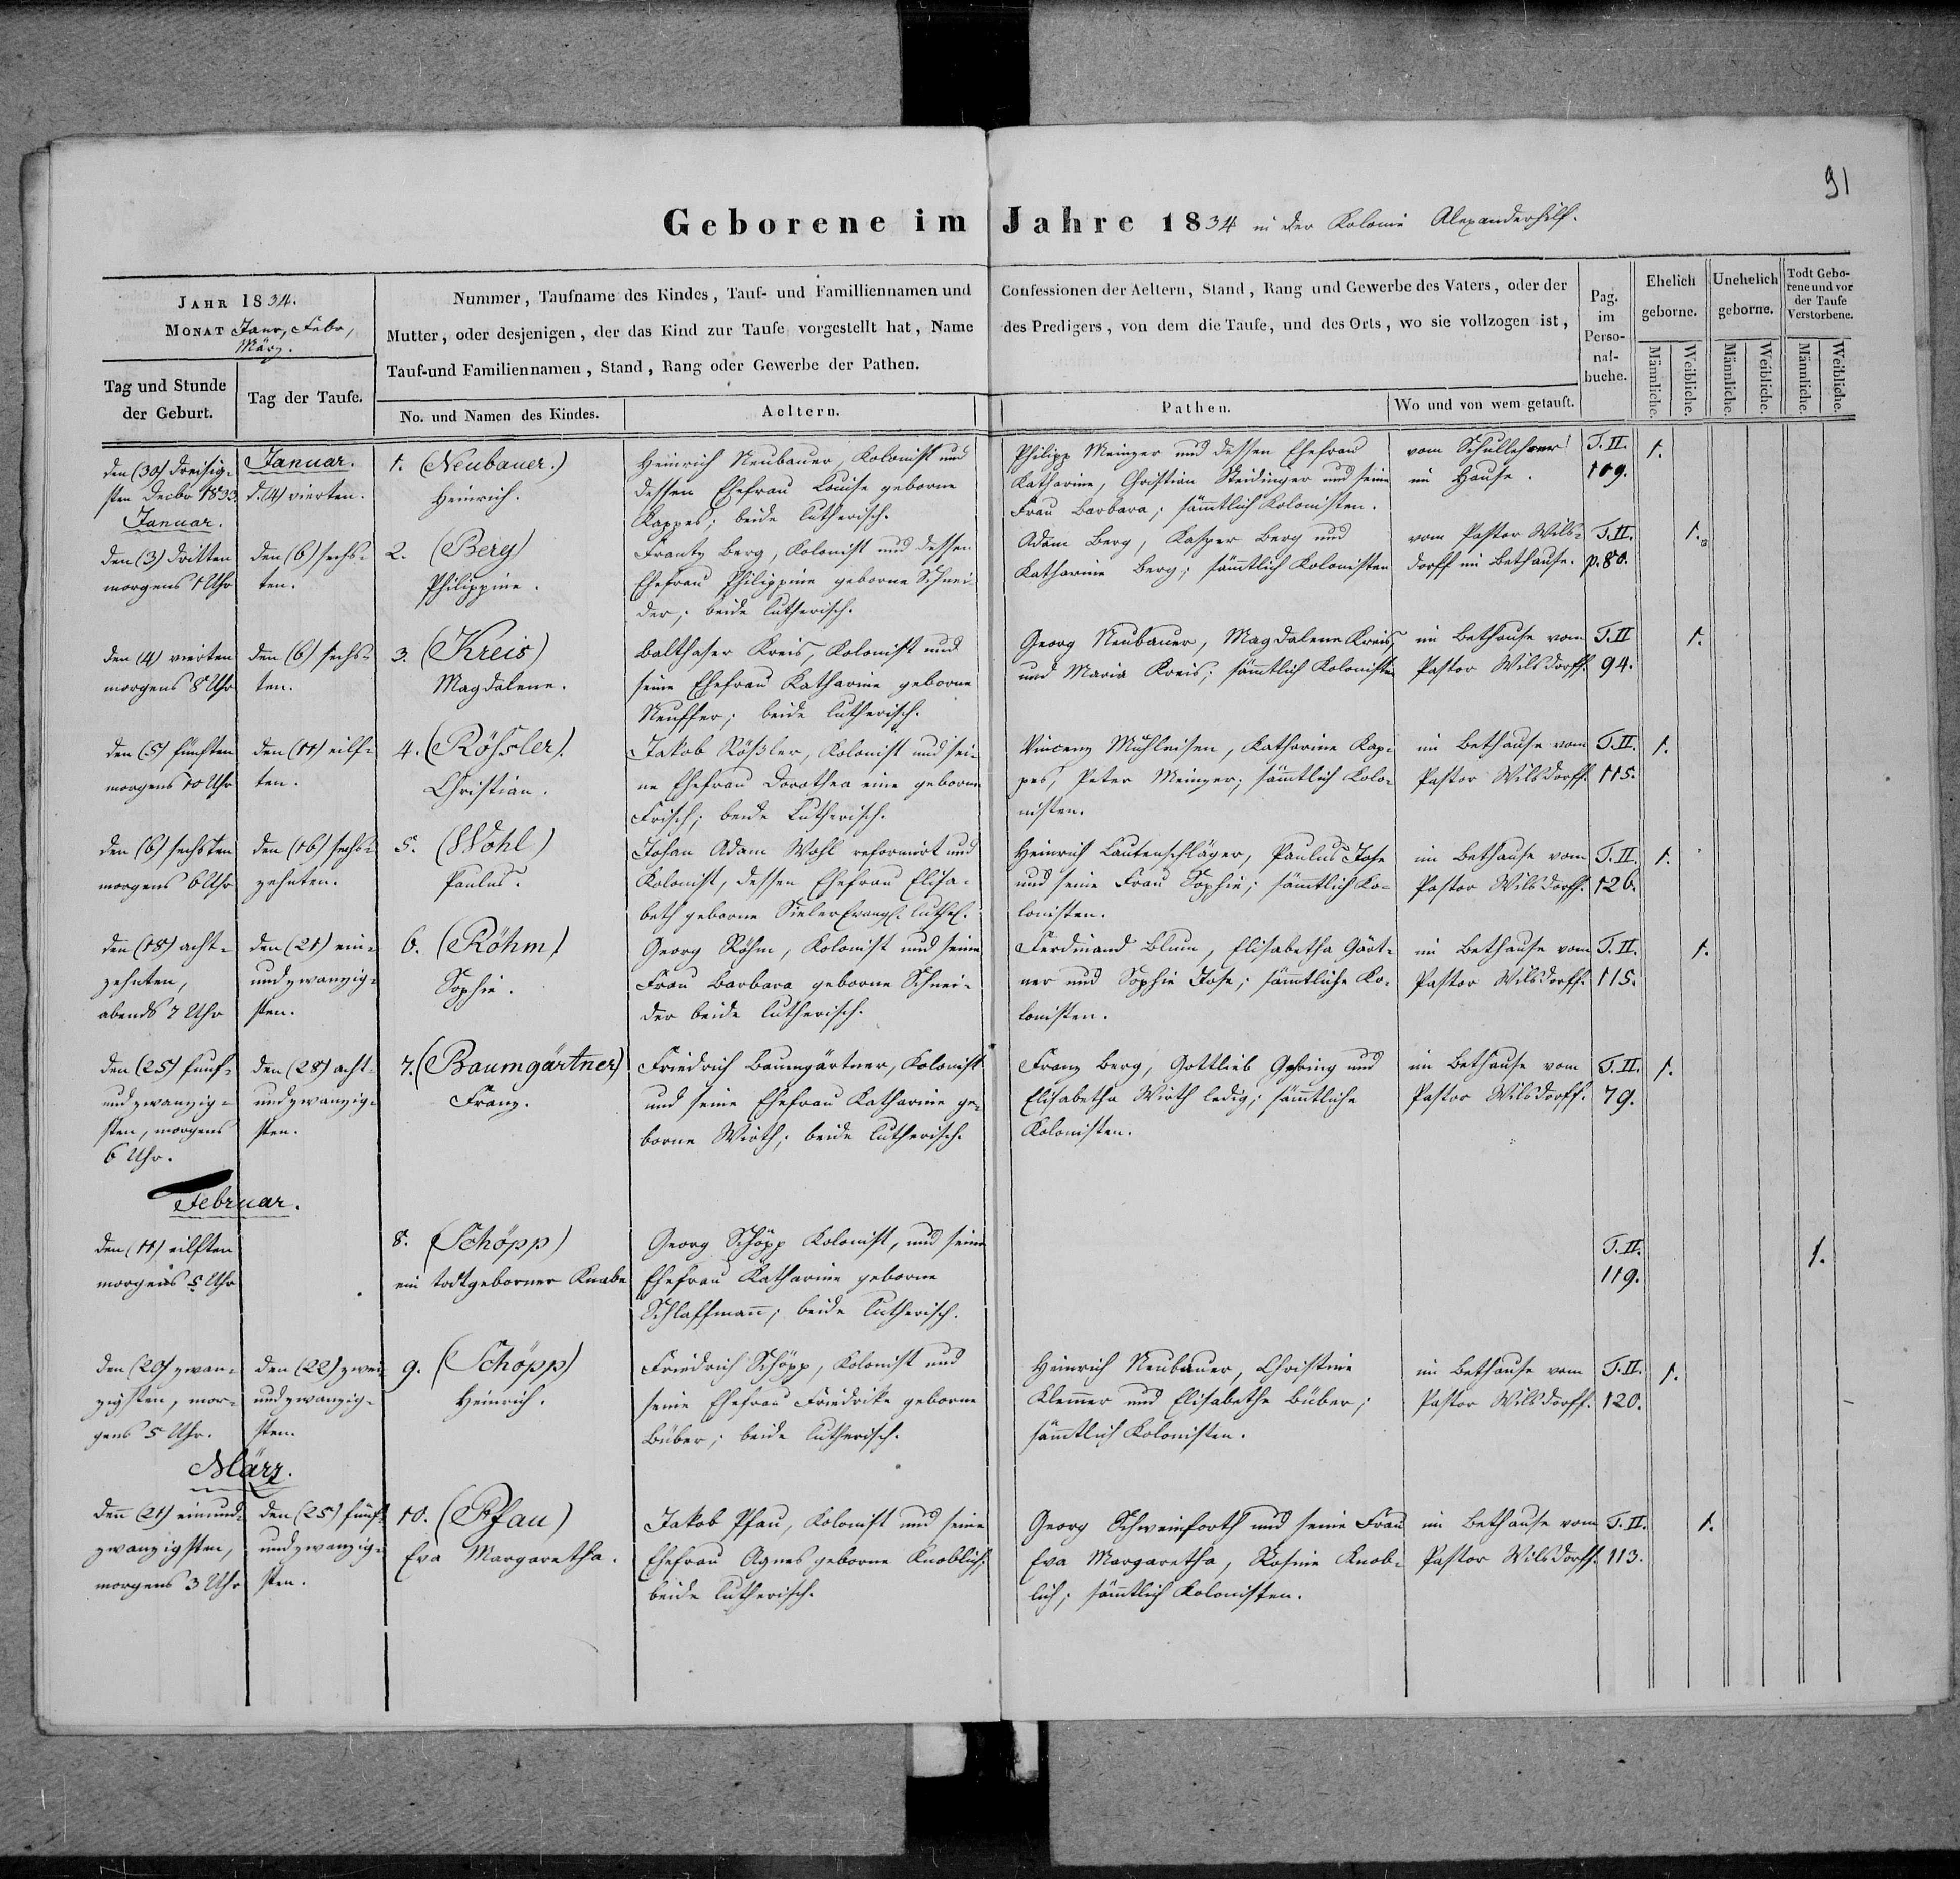 91
Geborene im Jahre 1834 in der Kolonie Alexanderhilf.
JAHR 1834.
MONAT Janr, Febr,
März.
Tag und Stunde
der Geburt.
Tag der Taufe.
Nummer, Taufname des Kindes, Tauf- und Familliennamen und Confessionen der Aeltern, Stand, Rang und Gewerbe des Vaters, oder der
Mutter, oder desjenigen, der das Kind zur Taufe vorgestellt hat, Name des Predigers, von dem die Taufe, und des Orts, wo sie vollzogen ist,
Tauf-und Familiennamen, Stand, Rang oder Gewerbe der Pathen.
No. und Namen des Kindes.
Aeltern.
Pathen.
Wo und von wem getauft.
Pag.
im
Perso-
nal-
buche.
Ehelich
geborne.
Unehelich
geborne.
Todt Gebo-
rene und vor
der Taufe
Verstorbene.
Männliche.
Weibliche.
Männliche.
Weibliche.
Männliche.
Weibliche.
den (30) dreisig-
sten Decbr 1833
Januar.
d. (4) vierten.
1. (Neubauer.)
Heinrich.
Heinrich Neubauer, Kolonist und
dessen Ehefrau Louise geborne
Kappes; beide lutherisch.
Philipp Meinzer und dessen Ehefrau
Katharine, Christian Steidinger und seine
Frau Barbara; sämtlich Kolonisten.
vom Schullehrer
im Hause.
T. II.
109.
1.
Januar.
den (3) dritten
morgens 1 Uhr
den (6) sechs-
ten.
2. (Berg)
Philippine.
Frantz Berg, Kolonist und dessen
Ehefrau Philippine geborne Schnei-
der; beide lutherisch.
Adam Berg, Kasper Berg und
Katharine Berg; sämtlich Kolonisten
vom Pastor Wils-
dorff im Bethause.
T. II.
p. 80.
1.
den (4) vierten
morgens 8 Uhr
den (6) sechs-
ten.
3. (Kreis)
Magdalene.
Balthaser Kreis, Kolonist und
seine Ehefrau Katharine geborne
Neuffer; beide lutherisch.
Georg Neubauer, Magdalene Kreis,
und Maria Kreis; sämtlich Kolonisten
im Bethause vom
Pastor Wilsdorff.
T. II
94.
1.
den (5) fünften
morgens 10 Uhr
den (11) eilf-
ten.
4. (Rößler).
Christian.
Jakob Rößler, Kolonist und sei-
ne Ehefrau Dorothea eine geborne
Frisch; beide Lutherisch.
Vincenz Mühleisen, Katharine Kap-
pes, Peter Meinzer; sämtlich Kolo-
nisten.
im Bethause vom
Pastor Wilsdorff.
T. II.
115.
1.
den (6) sechsten
morgens 6 Uhr
den (16) sechs-
zehnten.
5. (Wohl)
Paulus.
Johan Adam Wohl reformirt und
Kolonist, dessen Ehefrau Elisa-
beth geborne Sieler Evangl. luthel.
Heinrich Lautenschläger, Paulus Jose
und seine Frau Sophie; sämtlich Ko-
lonisten.
im Bethause vom
Pastor Wilsdorff.
T. II.
126.
1.
den (18) acht-
zehnten,
abends 7 Uhr
den (21) ein-
und zwanzig-
sten.
6. (Röhm)
Sophie.
Georg Röhm, Kolonist und seine
Frau Barbara geborne Schnei-
der beide lutherisch.
Ferdinand Blum, Elisabetha Gärt-
ner und Sophie Jose; sämtliche Ko-
lonisten.
im Bethause vom
Pastor Wilsdorff.
T. II.
115.
1.
den (25) fünf-
und zwanzig-
sten, morgens
6 Uhr.
den (28) acht-
und zwanzig-
sten.
7. (Baumgärtner)
Franz.
Friedrich Baumgärtner, Kolonist
und seine Ehefrau Katharine ge-
borne Wirth; beide lutherisch.
Franz Berg, Gottlieb Gehring und
Elisabetha Wirth ledig; sämtliche
Kolonisten.
im Bethause vom
Pastor Wilsdorff.
T. II.
79.
1.
Februar.
den (11) eilften
morgens 5 Uhr
8. (Schöpp)
ein todtgeborner Knabe
Georg Schöpp Kolonist, und seine
Ehefrau Katharine geborne
Schlaffmañ; beide lutherisch.
T. II.
119.
1.
den (20) zwan-
zigsten, mor-
gens 5 Uhr.
den (22) zwei
und zwanzig-
sten.
9. (Schöpp)
Heinrich.
Friedrich Schöpp, Kolonist und
seine Ehefrau Friedrike geborne
Büber; beide lutherisch.
Heinrich Neubauer, Christine
Klemer und Elisabethe Büber;
sämtlich Kolonisten.
im Bethause vom
Pastor Wilsdorff.
T. II.
120.
1.
März.
den (21) einund-
zwanzigsten,
morgens 3 Uhr
den (25) fünf-
und zwanzig-
sten.
10. (Pfau)
Eva Margaretha.
Jakob Pfau, Kolonist und seine
Ehefrau Agnes geborne Knoblich;
beide lutherisch.
Georg Schweinforth und seine Frau
Eva Margaretha, Rosine Knob-
lich; sämtlich Kolonisten.
im Bethause vom
Pastor Wilsdorff.
T. II.
113.
1.